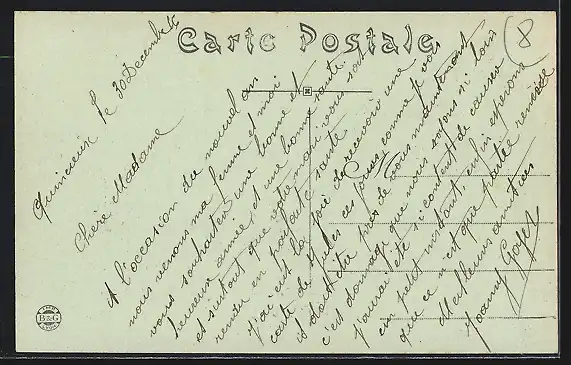 Carte Postale
8
Quincieux le 30 Décembre
Chère Madame
A l'occasion du nouvel an
nous venons ma femme et moi
vous souhaiter une bonne et
heureuse année, et une bonne santé
et surtout que votre mari vous soit
rendu en parfaite santé
J'ai eu la joie de recevoir une
carte de Jules ces jours comme
il doit être près de vous maintenant
c'est dommage que nous soyons si loin
j'aurai été si content de causer
un petit instant, enfin espérons
que ce n'est que partie remise
Meilleures amitiés
Joanny Goyet
B&G